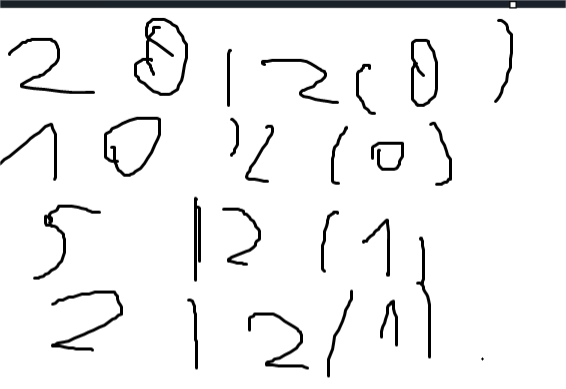 20 | 2 (0)
10 | 2 (0)
5 | 2 (1)
2 | 2 (1)